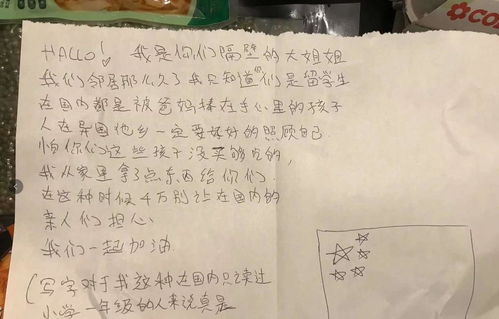 HALLO! 我是你们隔壁的大姐姐
我们邻居那么久了我只知道你们是留学生
在国内都是被爸妈捧在手心里的孩子
人在异国他乡一定要好好的照顾自己
怕你们这些孩子没买够吃的,
我从家里拿了点东西给你们.
在这种时候千万别让在国内的
亲人们担心
我们一起加油
(写字对于我这种在国内只读过
小学一年级的人来说真是